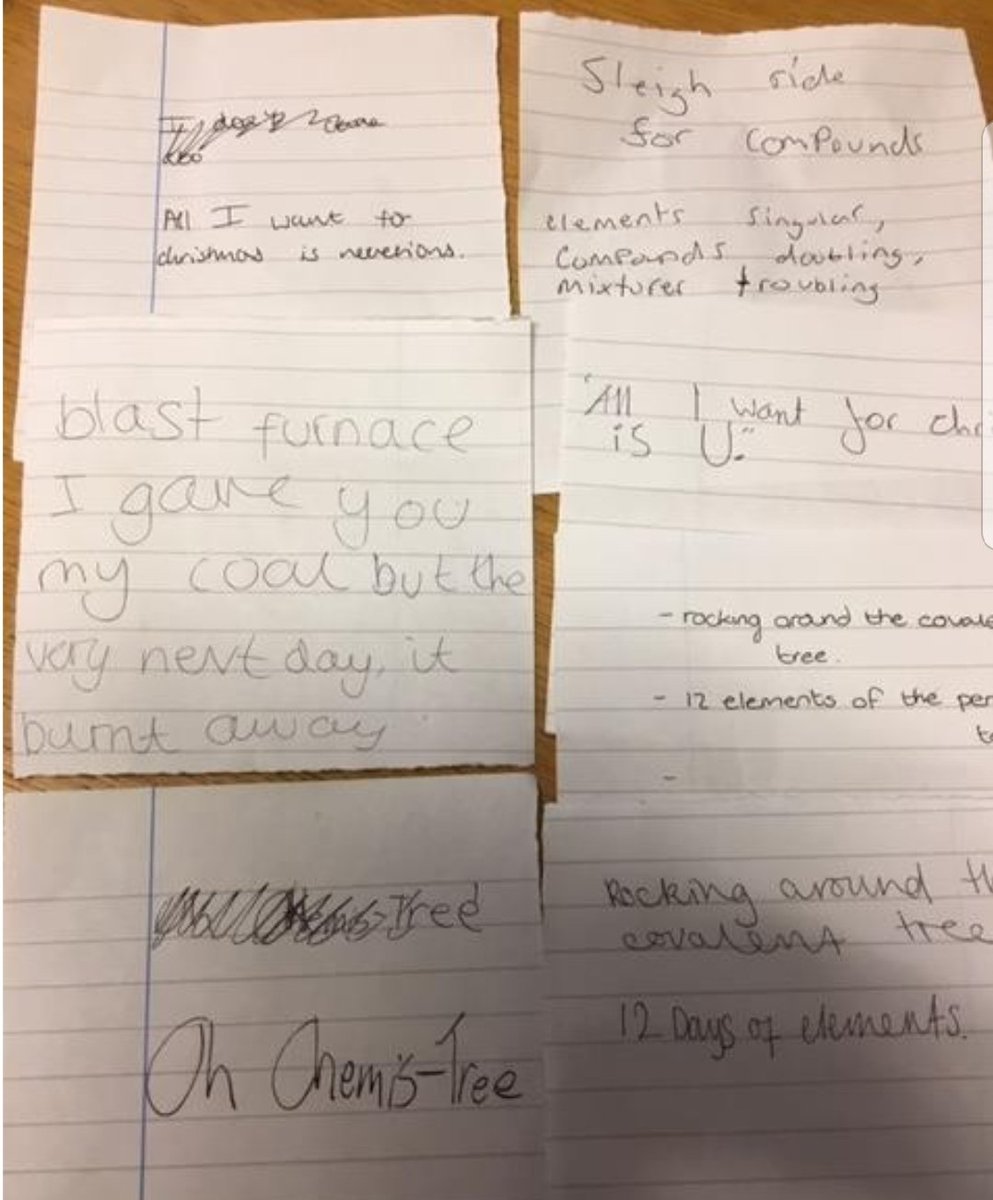 All I want to
christmas is
Sleigh ride
for Compounds
elements singular,
Compounds doubling,
mixturer troubling
blast furnace
I gave you
my coal but the
very next day, it
burnt away
"All I want for chr
is U."
- rocking around the covale
tree.
- 12 elements of the per
-
Tree
Oh Chemis-Tree
Rocking around th
covalent tree
12 Days of elements.